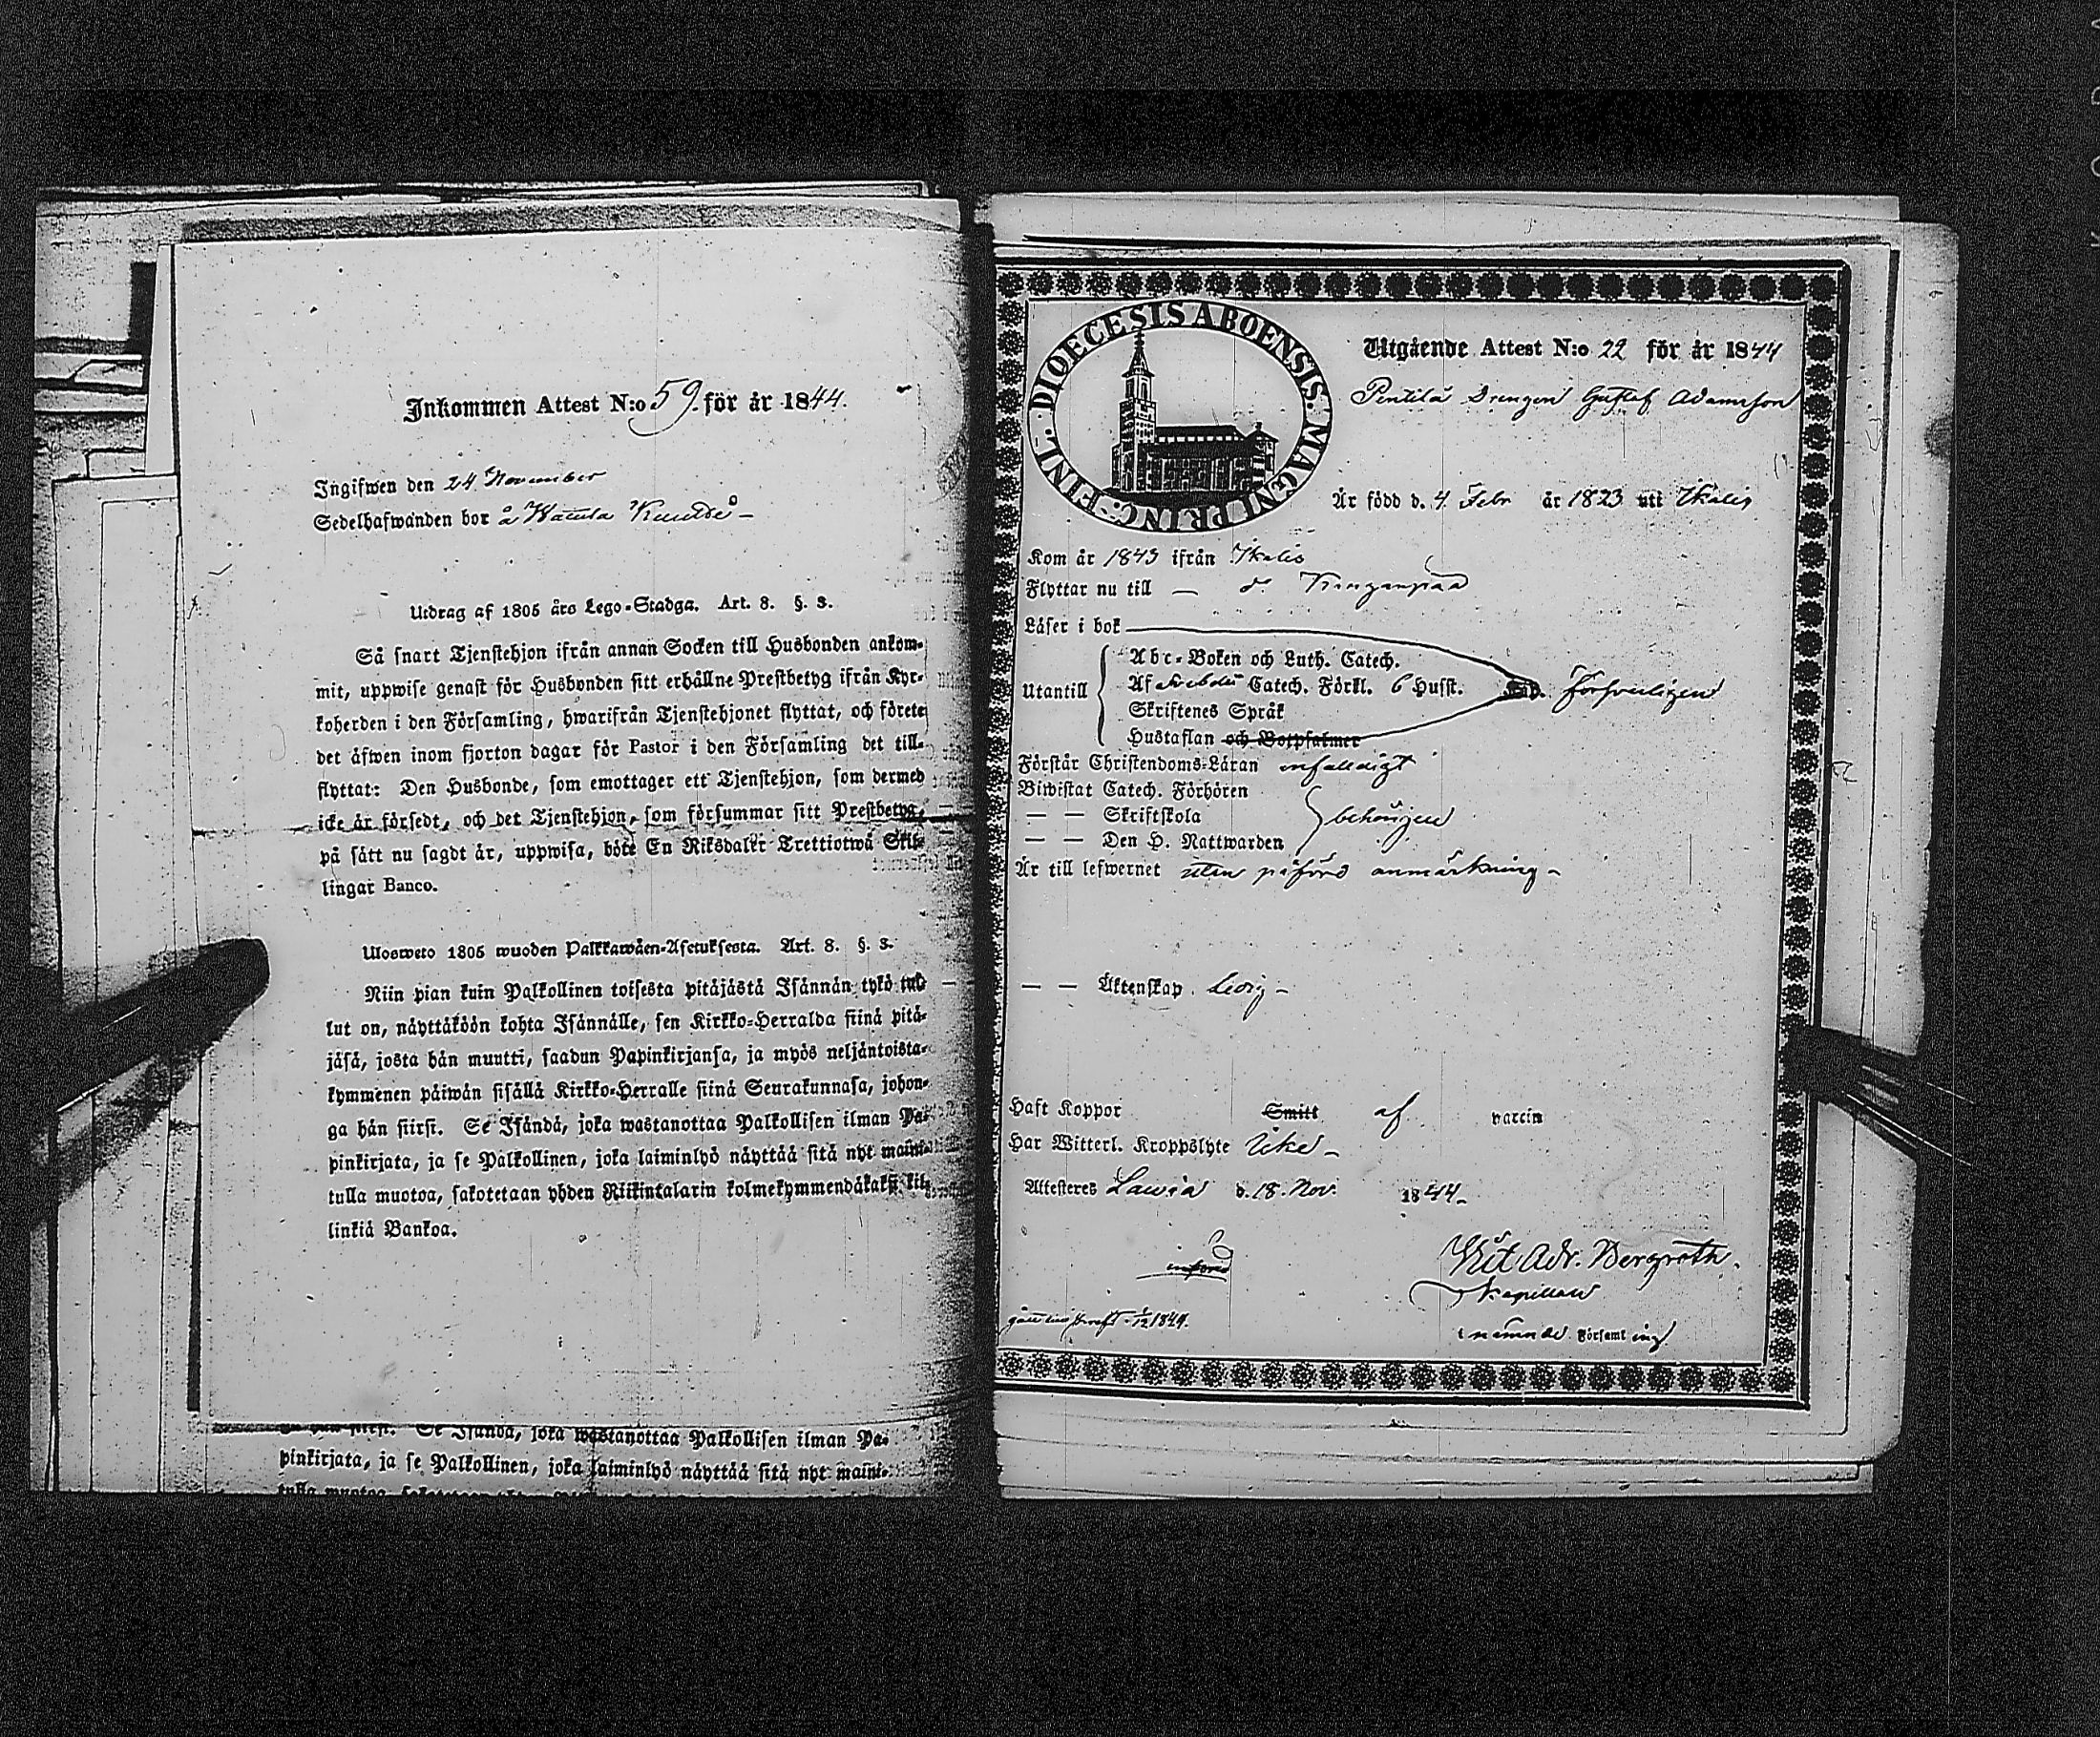 Inkommen Attest N:o 59. för år 1844.
Ingifwen den 24 November
Sedelhafwanden bor å
Utdrag af 1805 års Lego-Stadga. Art. 8. §. 3.
Så snart Tjenstehjon ifrån annan Socken till Husbonden ankom-
mit, uppwise genast för Husbonden sitt erhållne Prestbetyg ifrån Kyr-
koherden i den Församling, hwarifrån Tjenstehjonet flyttat, och förete
det äfwen inom fjorton dagar för Pastor i den Församling det till-
flyttat: Den Husbonde, som emottager ett Tjenstehjon, som dermed
icke är försedt, och det Tjenstehjon, som försummar sitt Prestbetyg,
på sätt nu sagdt är, uppwisa, böte En Riksdaler Trettiotwå Skil-
lingar Banco.
Ulosweto 1805 wuoden Palkkawäen-Asetuksesta. Art. 8. §. 3.
Niin pian kuin Palkollinen toisesta pitäjästä Isännän tykö tul-
lut on, näyttäköön kohta Isännälle, sen Kirkko-Herralda siinä pitä-
jäsä, josta hän muutti, saadun Papinkirjansa, ja myös neljäntoista-
kymmenen päiwän sisällä Kirkko-Herralle siinä Seurakunnasa, johon-
ga hän siirsi. Se Isändä, joka wastanottaa Palkollisen ilman Pa-
pinkirjata, ja se Palkollinen, joka laiminlyö näyttää sitä nyt maini-
tulla muotoa, sakotetaan yhden Riikintalarin kolmekymmendäkaksi kil-
linkiä Bankoa.
Se Isändä, joka wastanottaa Palkollisen ilman Pa-
pinkirjata, ja se Palkollinen, joka laiminlyö näyttää sitä nyt maini-
tulla muotoa,
DIOECESIS ABOENSIS. MAGNI PRINC. FINL.
Utgående Attest N:o 22 för år 1844
Pentilä Drengen Gustaf Adamsson
Är född d. 4 Febr år 1823 uti Ikalis
Kom år 1843 ifrån Ikalis
Flyttar nu till — Kangaspää
Läser i bok
Utantill
Abc-Boken och Luth. Catech.
Af Svebelii Catech. Förkl. 6 Husst.
Skriftenes Språk
Hustaflan och Botpsalmer
försvarligen
Förstår Christendoms-Läran enfaldigt
Biwistat Catech. Förhören
— — Skriftskola
— — Den H. Nattwarden
behörigen
Är till lefwernet utan påförd anmärkning -
— — Äktenskap. Ledig -
Haft Koppor Smitt af vaccin
Har Witterl. Kroppslyte Icke -
Attesteres Lavia d. 18. Nov. 1844 -
införd
Wilh Adr. Bergroth.
Kapellan
1849.
i nämnde Församling